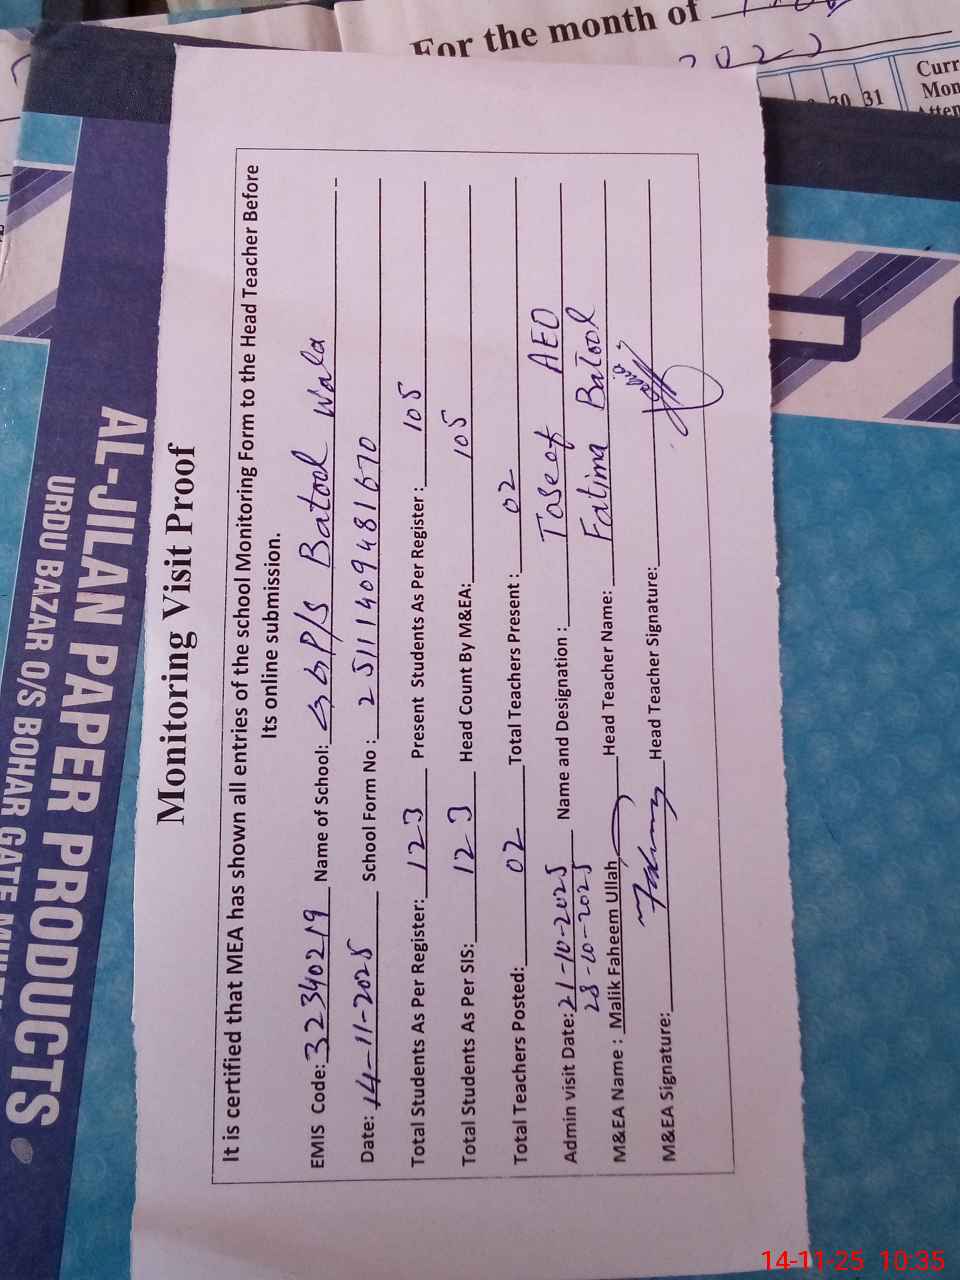 For the month of
2022
30 31
Curr
Mon
Atten
AL-JILAN PAPER PRODUCTS
URDU BAZAR O/S BOHAR GATE
Monitoring Visit Proof
It is certified that MEA has shown all entries of the school Monitoring Form to the Head Teacher Before
Its online submission.
EMIS Code: 32340219 Name of School: GGP/S Batool Wala
Date: 14-11-2025 School Form No : 2511140948 1670
Total Students As Per Register: 123 Present Students As Per Register : 105
Total Students As Per SIS: 123 Head Count By M&EA: 105
Total Teachers Posted: 02 Total Teachers Present : 02
Admin visit Date: 21-10-2025 Name and Designation : Taseef AEO
28-10-2025
M&EA Name : Malik Faheem Ullah Head Teacher Name: Fatima Batool
M&EA Signature: Head Teacher Signature:
14-11-25 10:35